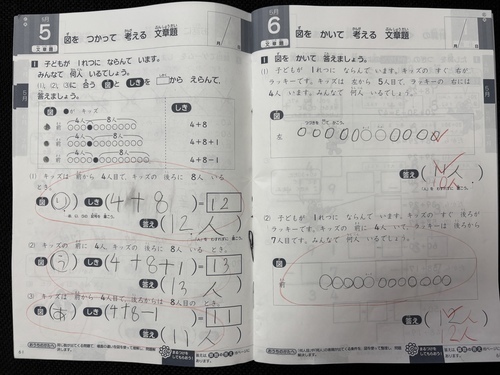 5月
5
文章題
図を つかって 考える 文章題
1 子どもが 1れつに ならんで います。
みんなで 何人 いるでしょう。
(1), (2), (3)に 合う 図と しきを □から えらんで、
答えましょう。
図 ●が キッズ しき
4人 8人
前 4+8
4人 8人
前 4+8+1
4人 8人
前 4+8-1
(1) キッズは 前から 4人目で、キッズの 後ろに 8人 いる
とき。
図 しき (4+8)= 12
答え (12人)
(2) キッズの 前に 4人、キッズの 後ろに 8人 いる とき。
図 (う) しき (4+8+1)= 13
答え (13人)
(3) キッズは 前から 4人目で、後ろからは 8人目の とき。
図 (あ) しき (4+8-1)= 11
答え (11人)
おうちのかたへ
41
5月
6
文章題
図を かいて 考える 文章題
1 図を かいて 答えましょう。
(1) 子どもが 1れつに ならんで います。キッズの すぐ 右が
ラッキーです。キッズは 左から 5人目で、ラッキーの 右には
4人 います。みんなで 何人 いるでしょう。
図
左
答え
10人
(2) 子どもが 1れつに ならんで います。キッズの すぐ 後ろが
ラッキーです。キッズの 前に 4人 いて、ラッキーは 後ろから
7人目です。みんなで 何人 いるでしょう。
図
前
答え
おうちのかたへ